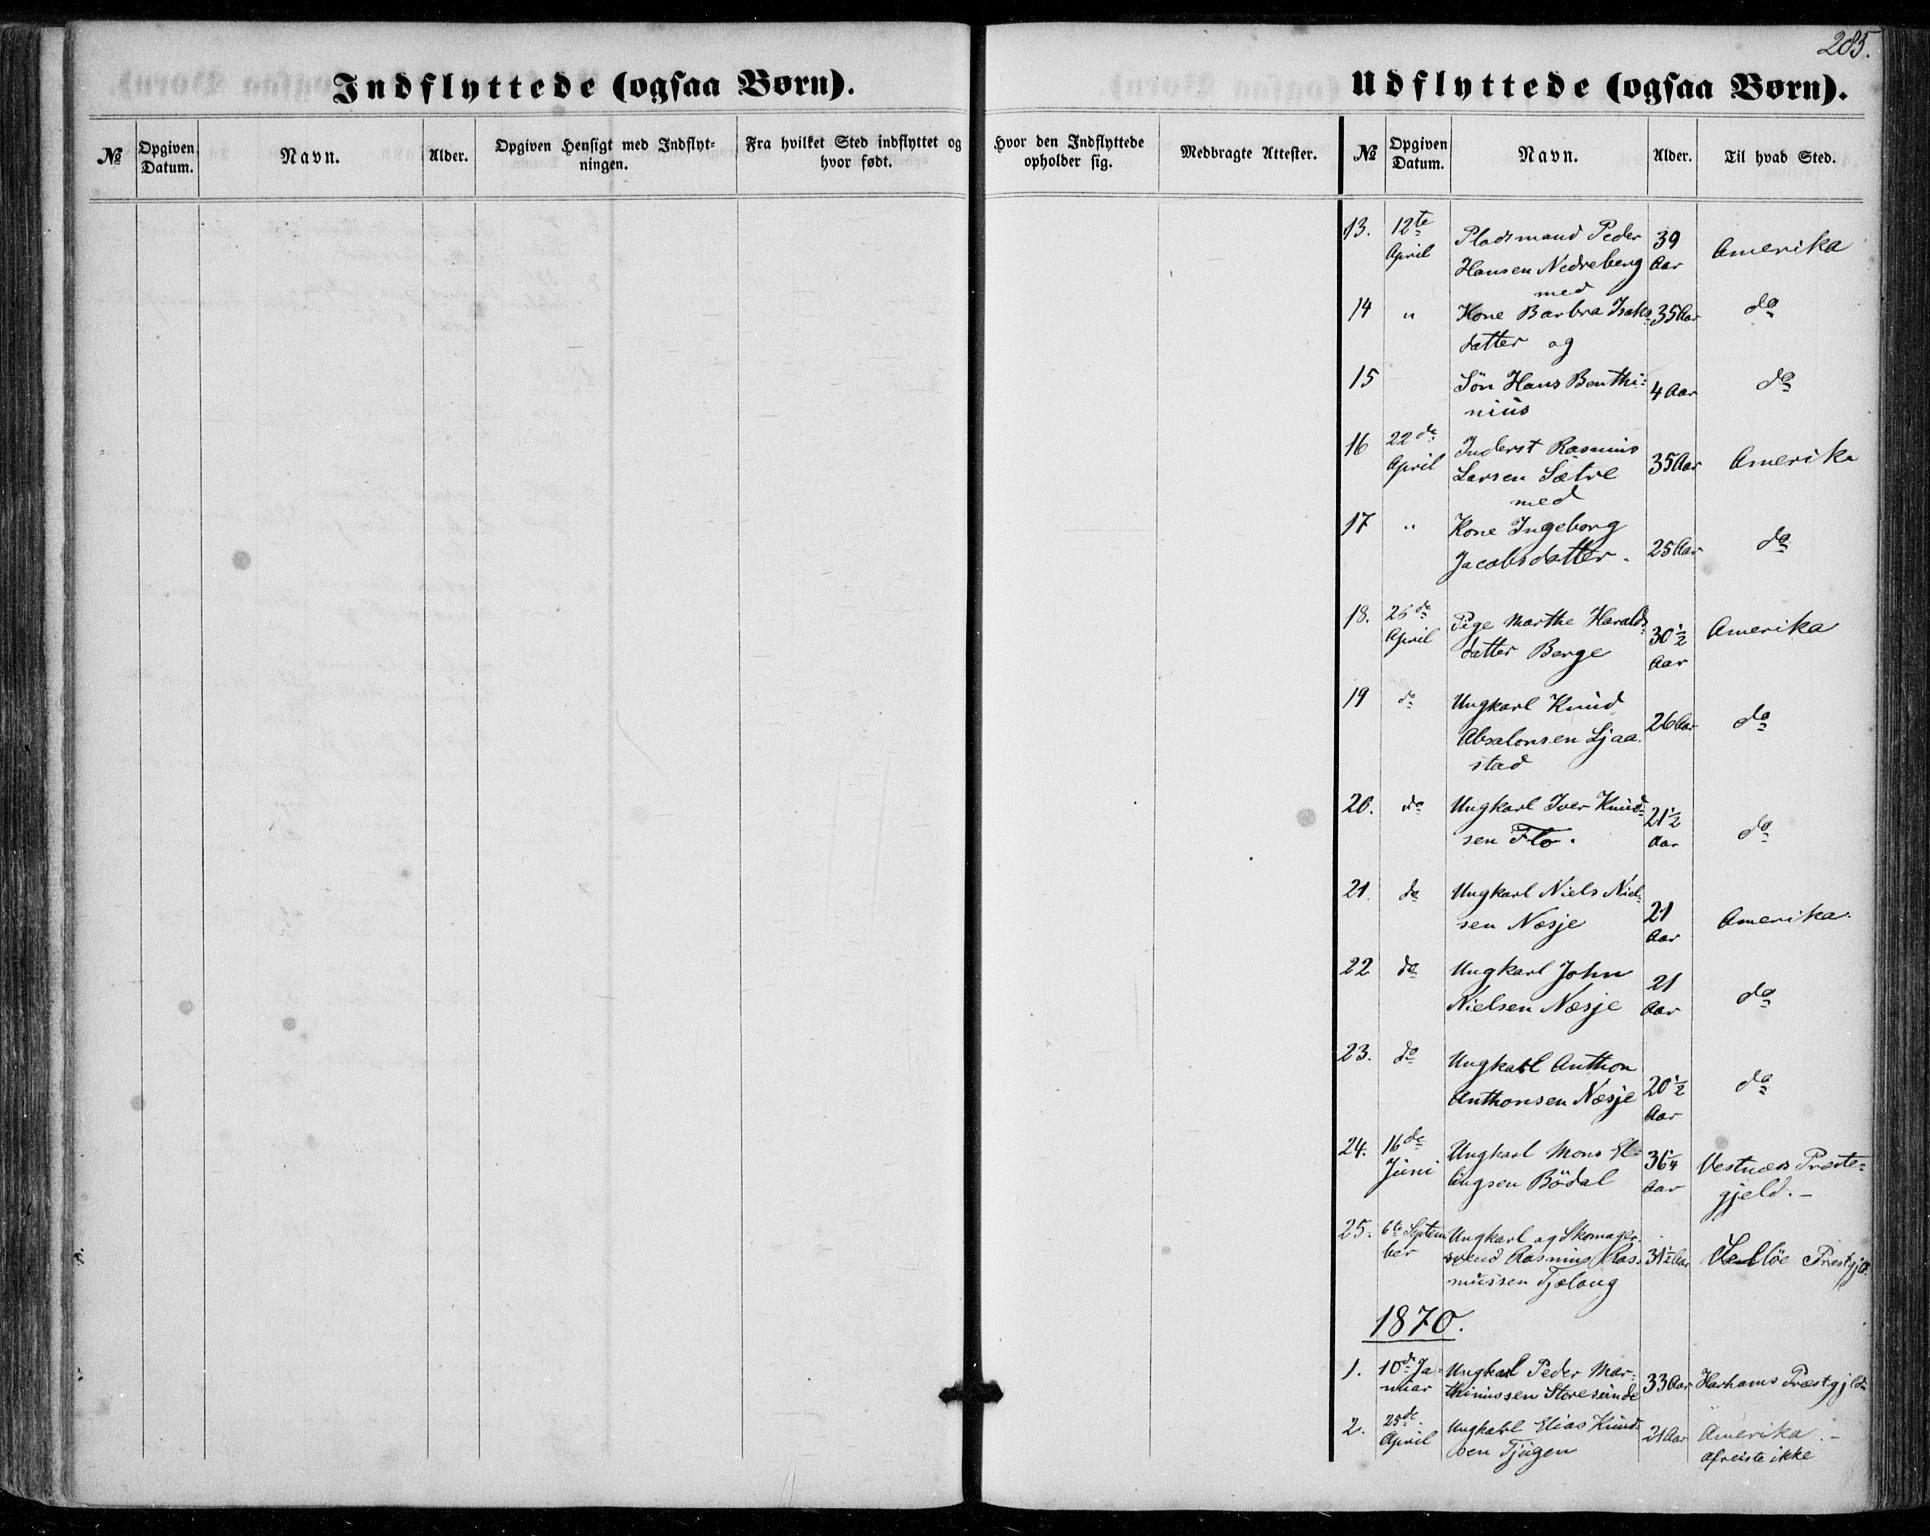 285.
Indflyttede (ogsaa Børn).
Udflyttede (ogsaa Børn).
№ Opgiven Datum. Navn. Alder. Opgiven Hensigt med Indflyt-ningen. Fra hvilket Sted indflyttet og hvor født. Hvor den Indflyttede opholder sig. Medbragte Attester.
№ Opgiven Datum. Navn. Alder. Til hvad Sted.
13. 12te April Pladsmand Peder 39 Aar Amerika
Hansen Nedreberg
med
14 " Kone Barbra Isaks- 35 Aar do
datter og
15 Søn Hans Benthi- 4 Aar do
nius
16 22de April Inderst Rasmus 35 Aar Amerika
Larsen Sætre
med
17 " Kone Ingeborg 25 Aar do
Jacobsdatter.
18. 26de April Pige Marthe Haralds- 30½ Aar Amerika
datter Berge
19 do Ungkarl Knud 26 Aar do
Absalonsen Ljaa-
stad
20. do Ungkarl Iver Knud- 21½ Aar do
sen Flo.
21. do Ungkarl Niels Niel- 21 Aar Amerika.
sen Næsje
22 do Ungkarl John 21 Aar do
Nielsen Næsje
23. do Ungkarl Anthon 20½ Aar do
Anthonsen Næsje
24. 16de Juni Ungkarl Mons El- 36¼ Aar Vestnæs Præste-
lingsen Bödal gjeld.-
25. 6te Septem Ungkarl og Skomager-
ber svend Rasmus Ras- 31½ Aar Præstgjld.
mussen Tjelaug
1870.
1. 10de Ja- Ungkarl Peder Mar- 33 Aar Harhams Præstgjeld
nuar thinussen Storesunde
2. 25de April Ungkarl Elias Knud- 21 Aar Amerika.-
sen Tjugen afreiste ikke